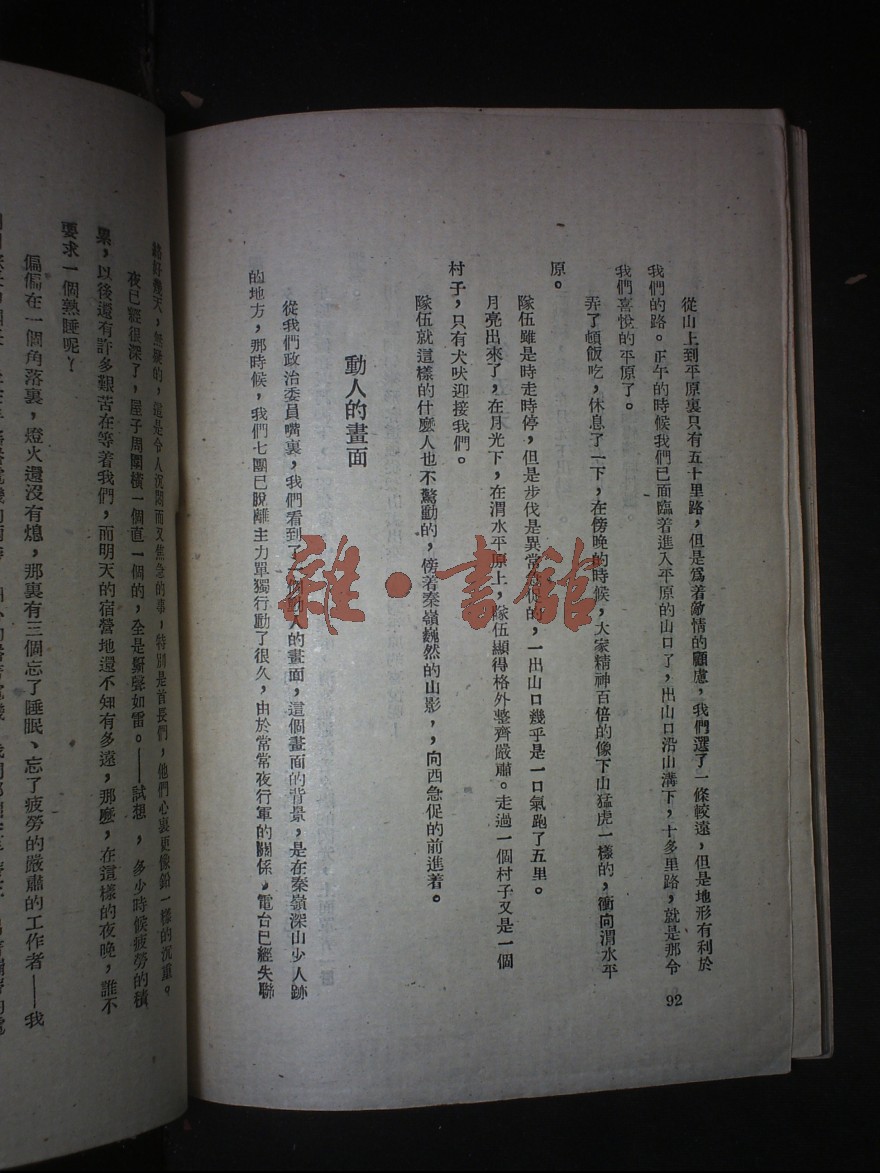 從山上到平原裏只有五十里路，但是爲着敵情的顧慮，我們選了一條較遠，但是地形有利於
我們的路。正午的時候我們已面臨着進入平原的山口了，出山口沿山溝下，十多里路，就是那令
我們喜悅的平原了。
弄了頓飯吃，休息了一下，在傍晚的時候，大家精神百倍的像下山猛虎一樣的，衝向渭水平
原。
隊伍雖是時走時停，但是步伐是異常的，一出山口幾乎是一口氣跑了五里。
月亮出來了，在月光下，在渭水平原上，隊伍顯得格外整齊嚴肅。走過一個村子又是一個
村子，只有犬吠迎接我們。
隊伍就這樣的什麼人也不驚動的，傍着秦嶺巍然的山影，，向西急促的前進着。
動人的畫面
從我們政治委員嘴裏，我們看到了一個動人的畫面，這個畫面的背景，是在秦嶺深山少人跡
的地方，那時候，我們七團已脫離主力單獨行動了很久，由於常常夜行軍的關係，電台已經失聯
92
絡好幾天，無疑的，這是令人沉悶而又焦急的事，特別是首長們，他們心裏更像鉛一樣的沉重。
夜已經很深了，屋子周圍橫一個直一個的，全是鼾聲如雷。——試想，多少時候疲勞的積
累，以後還有許多艱苦在等着我們，而明天的宿營地還不知有多遠，那麼，在這樣的夜晚，誰不
要求一個熟睡呢？
偏偏在一個角落裏，燈火還沒有熄，那裏有三個忘了睡眠、忘了疲勞的嚴肅的工作者——我
雜·書館